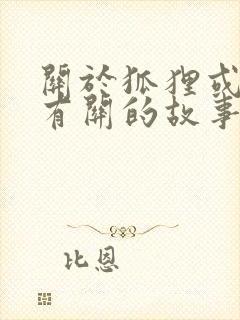 關於狐狸或
有關的故事
比恩